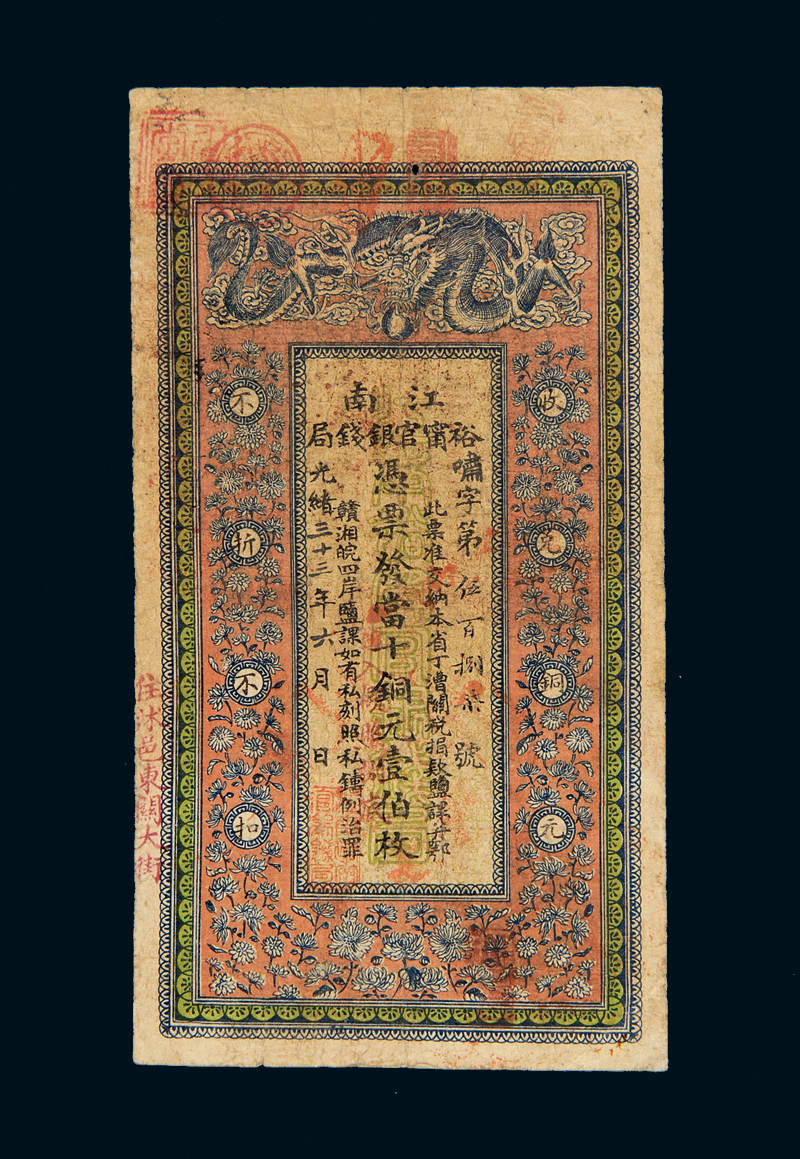 江南
裕甯官銀錢局
嘯字第伍百捌柒號
此票准交納本省丁漕關稅捐款鹽課并鄂
憑票發當十銅元壹伯枚
贛湘皖四岸鹽課如有私刻照私鑄例治罪
光緒三十三年六月 日
收兌銅元
不折不扣
住沭邑東關大街